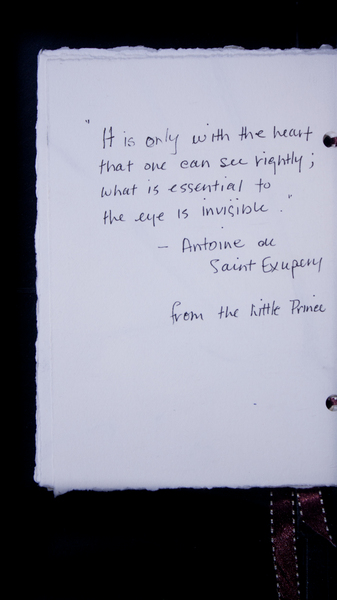 "It is only with the heart
that one can see rightly;
what is essential to
the eye is invisible."
- Antoine de
Saint Exupery
from the Little Prince